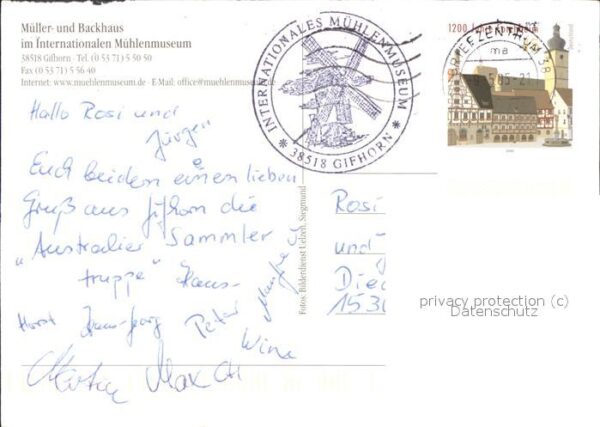 Müller- und Backhaus
im Internationalen Mühlenmuseum
38518 Gifhorn · Tel. (0 53 71) 5 50 50
Fax (0 53 71) 5 56 40
Internet: www.muehlenmuseum.de · E-Mail: office@muehlenmuseum.de
INTERNATIONALES MÜHLENMUSEUM
38518 GIFHORN
1200 Jahre
BRIEFZENTRUM 38
ma
Hallo Rosi und
Jürgen
Euch beiden einen lieben
Gruß aus Gifhorn die
"Australier Sammler
truppe" Hans-
Horst Hans-Georg Peter
Fotos: Bilderdienst Uelzen, Siegmund
Rosi
und
Died
1530
privacy protection (c)
Datenschutz